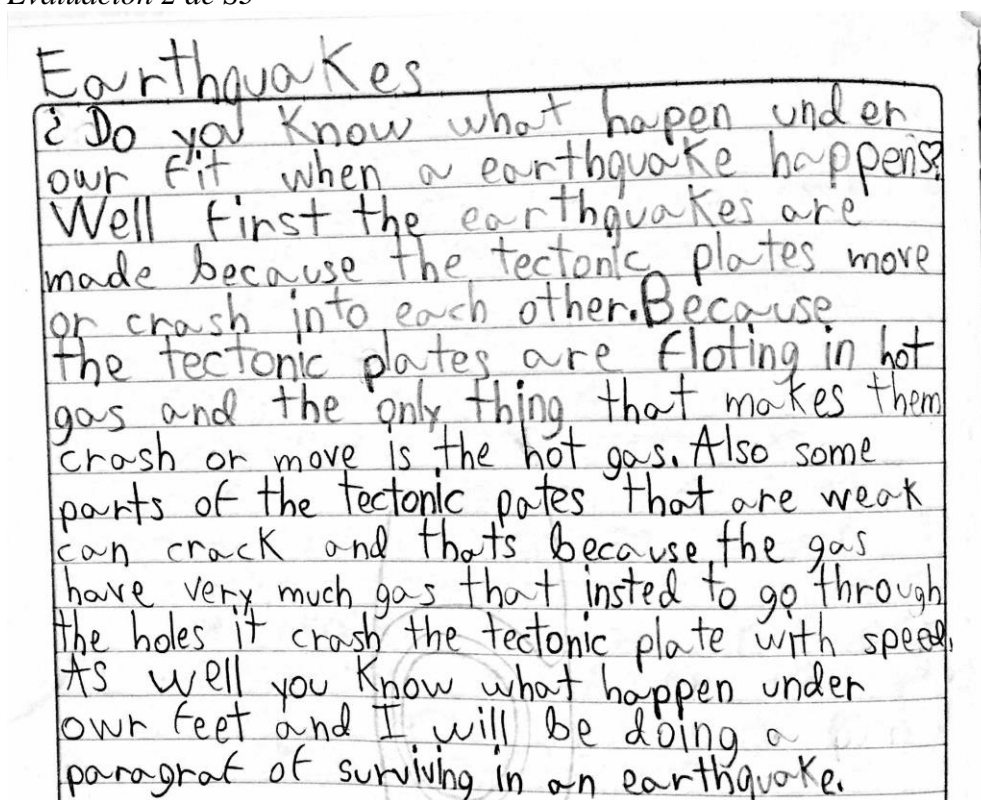 Evaluación 2 de S5
Earthquakes
¿Do you know what hapen under
owr fit when a earthquake happens?
Well first the earthquakes are
made because the tectonic plates move
or crash into each other. Because
the tectonic plates are floting in hot
gas and the only thing that makes them
crash or move is the hot gas. Also some
parts of the tectonic pates that are weak
can crack and thats because the gas
have very much gas that insted to go through
the holes it crash the tectonic plate with speed.
As well you know what happen under
owr feet and I will be doing a
paragraf of surviving in an earthquake.